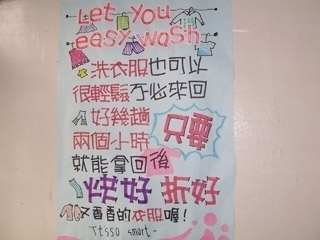 Let you
easy wash
洗衣服也可以
很輕鬆不必來回
好幾趟
只要
兩個小時
就能拿回後
快好 折好
又香香的衣服喔!
It's so smart~